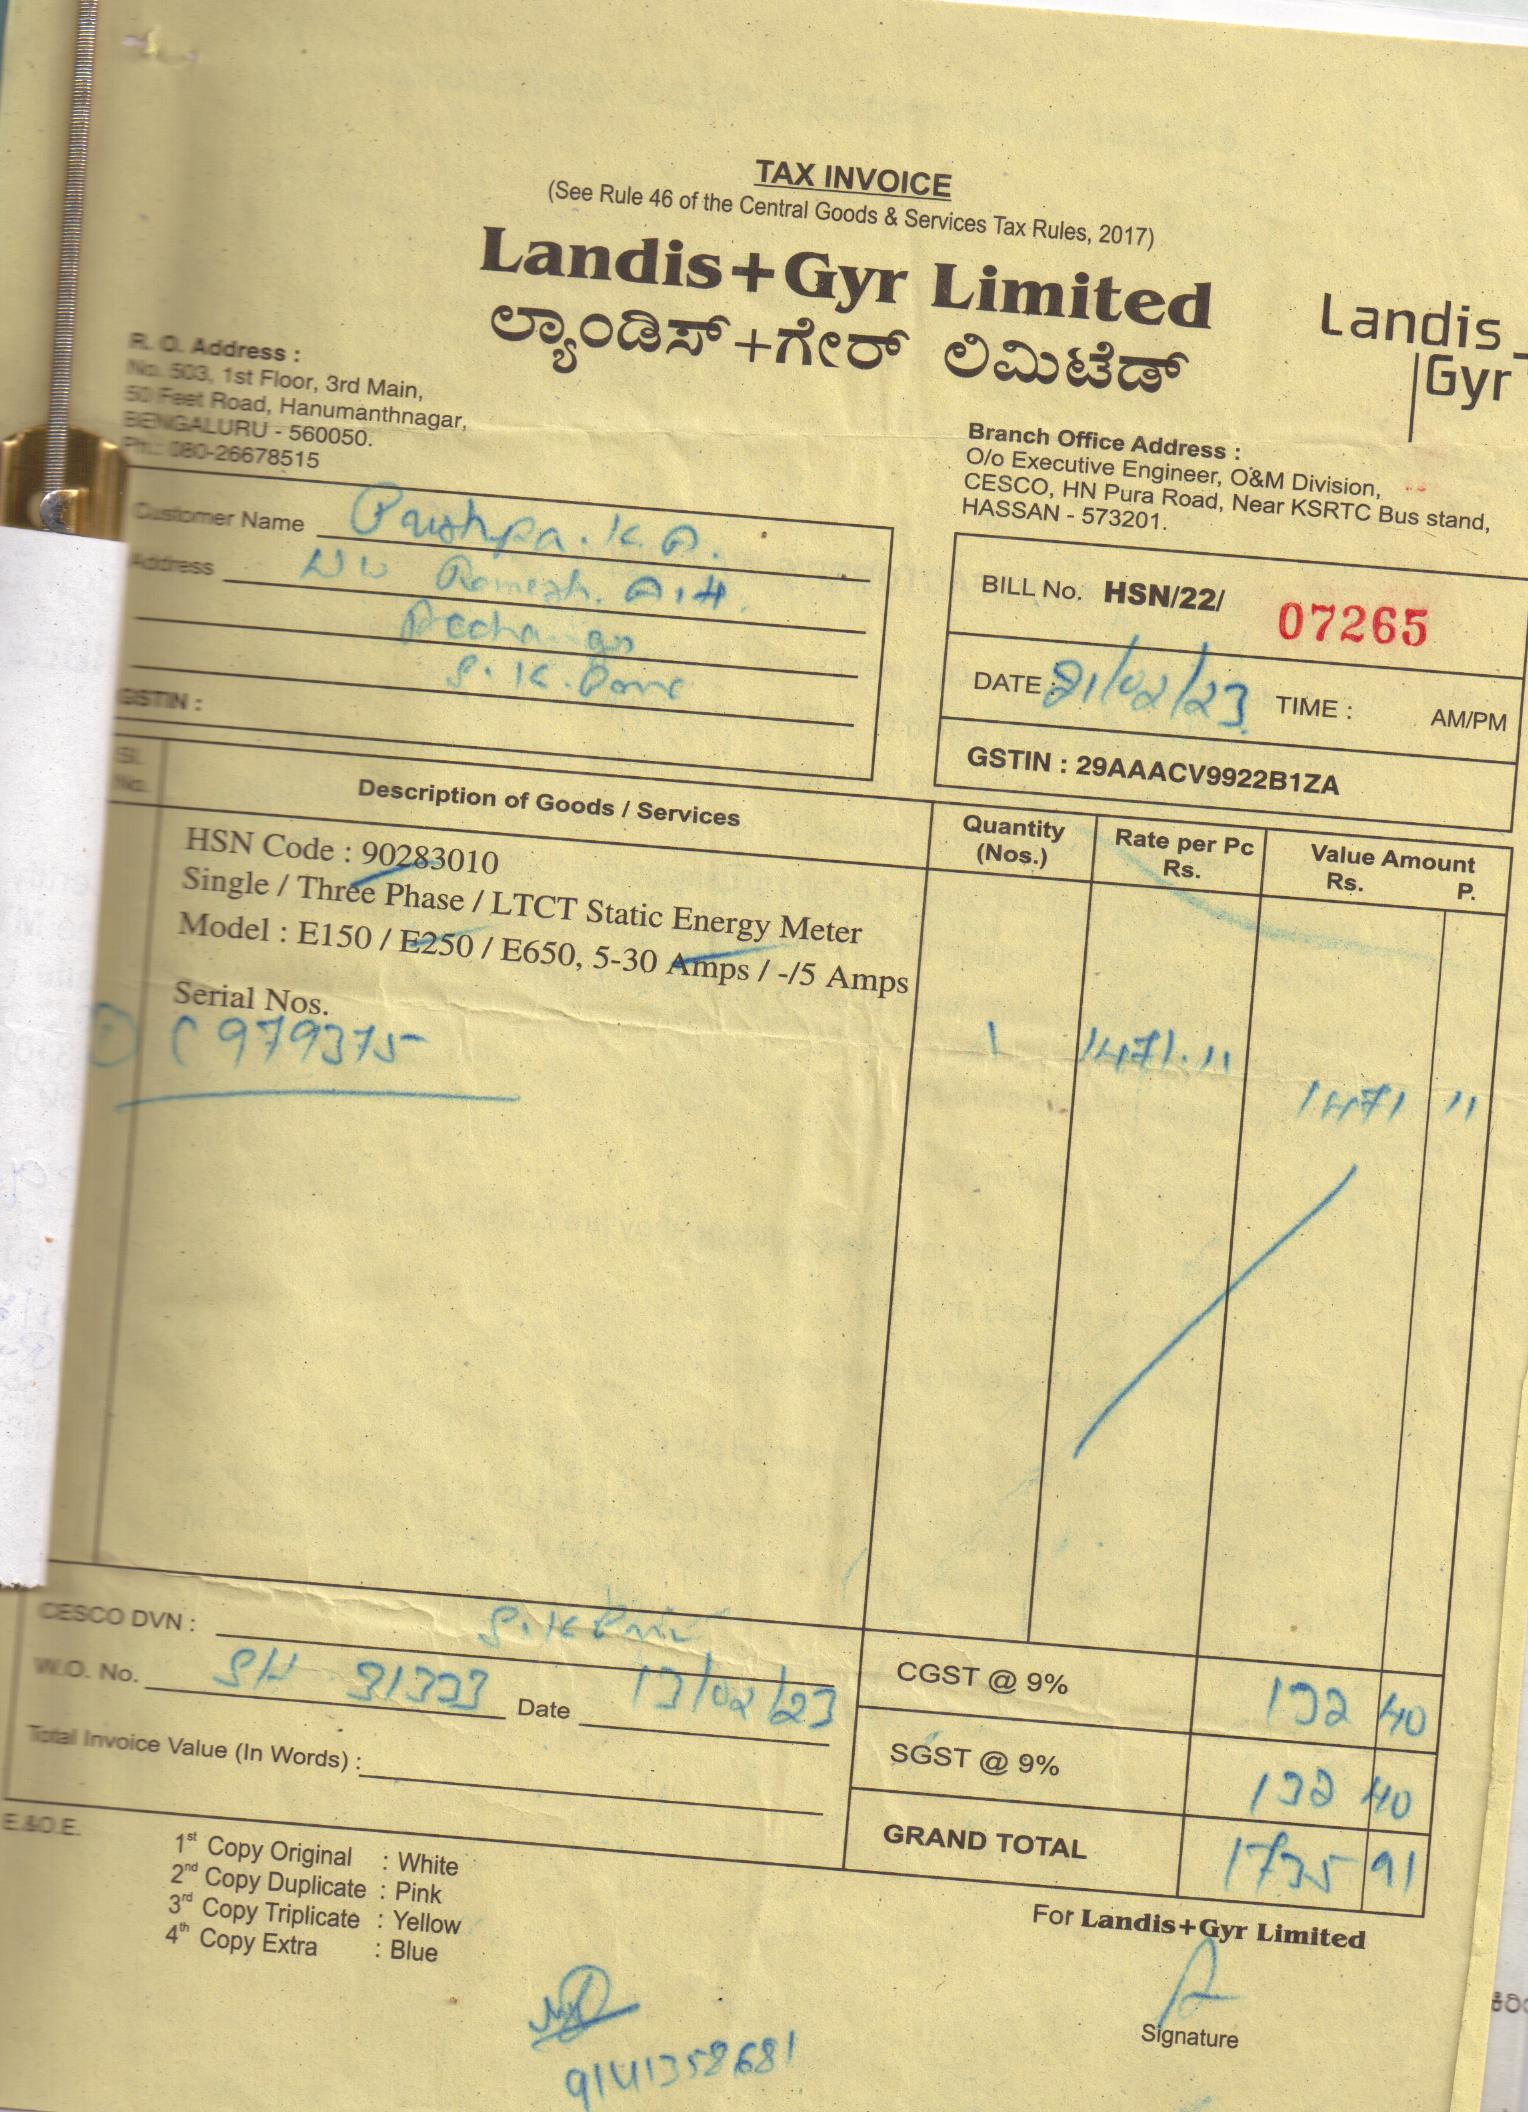 TAX INVOICE
(See Rule 46 of the Central Goods & Services Tax Rules, 2017)
Landis+Gyr Limited
ಲ್ಯಾಂಡಿಸ್+ಗೇರ್ ಲಿಮಿಟೆಡ್
Landis
Gyr
R. O. Address :
No. 503, 1st Floor, 3rd Main,
50 Feet Road, Hanumanthnagar,
BENGALURU - 560050.
Ph.: 080-26678515
Branch Office Address :
O/o Executive Engineer, O&M Division,
CESCO, HN Pura Road, Near KSRTC Bus stand,
HASSAN - 573201.
Customer Name Pushpa. K.
Address Ramesh.
GSTIN :
BILL No. HSN/22/ 07265
DATE : 21/02/23 TIME : AM/PM
GSTIN : 29AAACV9922B1ZA
Sl. No. Description of Goods / Services Quantity (Nos.) Rate per Pc Rs. Value Amount Rs. P.
HSN Code : 90283010
Single / Three Phase / LTCT Static Energy Meter
Model : E150 / E250 / E650, 5-30 Amps / -/5 Amps
Serial Nos.
C979375 1 1471.11
1471 11
CESCO DVN :
W.O. No. Date 13/02/23
Total Invoice Value (In Words) :
CGST @ 9% 132 40
SGST @ 9% 132 40
GRAND TOTAL 1735 91
E.&O.E.
1st Copy Original : White
2nd Copy Duplicate : Pink
3rd Copy Triplicate : Yellow
4th Copy Extra : Blue
For Landis+Gyr Limited
Signature
9141358681